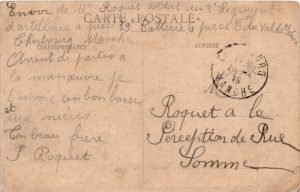 Envoi de Mr Roquet soldat au 2e Régiment
d'artillerie à pied 39 Batterie 6 pièce C. du Val de
CARTE POSTALE
Cherbourg Manche
CORRESPONDANCE
ADRESSE
Avant de partir a
la manœuvre je
t'envoie un bon baiser
et
aux nièces
Ton beau frère
J Roquet
CHERBOURG
MANCHE
M
Roquet a la
Perception de Rue
Somme